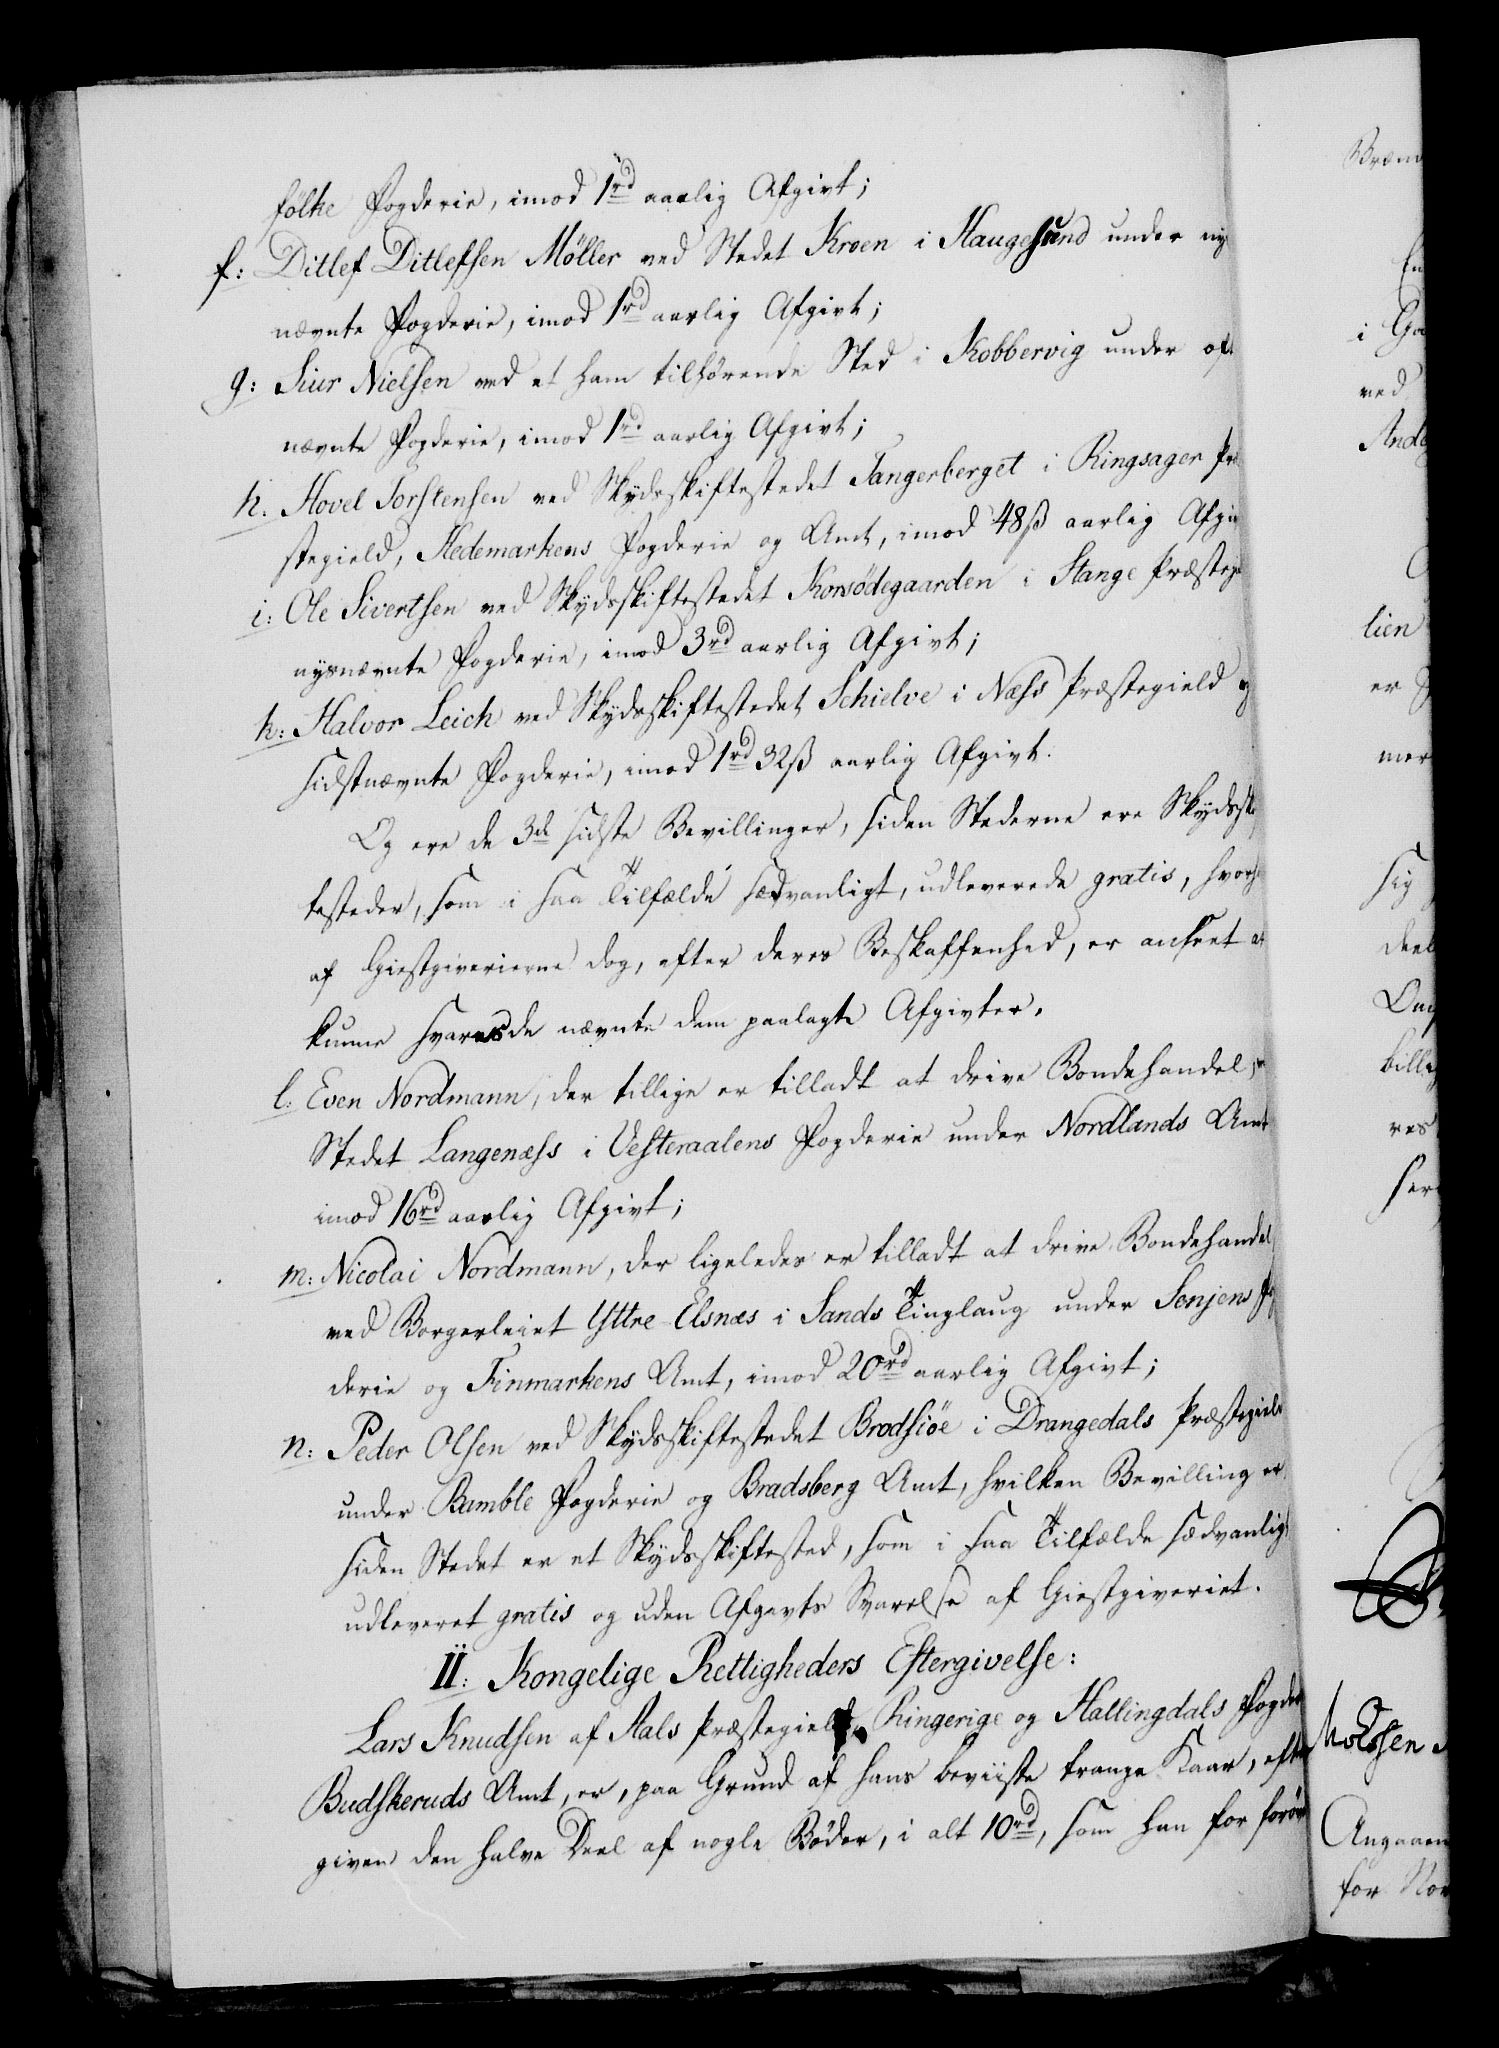 fölke Fogderie, imod 1rd aarlig Afgivt;
f: Ditlef Ditlefsen Möller ved Stedet Kroen i Haugesund under ny
nævnte Fogderie, imod 1rd aarlig Afgivt;
g: Siur Nielsen ved et ham tilhörende Sted i Kobbervig under oft
nævnte Fogderie, imod 1rd aarlig Afgivt;
h. Hovel Torstensen ved Skydsskiftestedet Tangerberget i Ringsager Præ
stegield, Hedemarkens Fogderie og Amt, imod 48ß aarlig Afgiv
i: Ole Sivertsen ved Skydsskiftestedet Korsödegaarden i Stange Præstegi
nysnævnte Fogderie, imod 3rd aarlig Afgivt;
k: Halvor Leich ved Skydsskiftestedet Schielve i Næss Præstegield og
sidstnævnte Fogderie, imod 1rd 32ß aarlig Afgivt.
Og ere de 3de sidste Bevillinger, siden Stederne ere Skydsskif
testeder, som i saa Tilfælde sædvanligt, udleverede gratis, hvor
af Giestgiverierne dog, efter deres Beskaffenhed, er anseet at
kunne svares de nævnte dem paalagte Afgivter.
l: Even Nordmann, der tillige er tilladt at drive Bondehandel,
Stedet Langenæss i Vesteraalens Fogderie under Nordlands Amt
imod 16rd aarlig Afgivt;
m: Nicolai Nordmann, der ligeledes er tilladt at drive Bondehandel
ved Borgerleiet Yttre-Elsnæs i Sands Tinglaug under Senjens Fog
derie og Finmarkens Amt, imod 20rd aarlig Afgivt;
n: Peder Olsen ved Skydsskiftestedet Brodsiöe i Drangedals Præstegield
under Bamble Fogderie og Bradsberg Amt, hvilken Bevilling er,
siden Stedet er et Skydsskiftested, som i saa Tilfælde sædvanligt
udleveret gratis og uden Afgivts Svarelse af Giestgiveriet.
II: Kongelige Rettigheders Eftergivelse:
Lars Knudsen af Aals Præstegield, Ringerige og Hallingdals Fogde
Budskeruds Amt, er, paa Grund af hans beviiste trange Kaar, efter
given den halve Deel af nogle Böder, i alt 10rd, som han for
i Go
ved
Ande
lien
er
mer
sig
deel
billig
res
Angaaen
for Nor